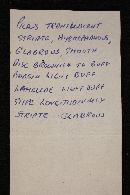 PILEUS TRANSLUCENT
STRIATE, HYGROPHANOUS,
GLABROUS, SMOOTH
DISC BROWNISH TO BUFF
MARGIN LIGHT BUFF
LAMELLAE LIGHT BUFF
STIPE LONGITUDINALLY
STRIATE - GLABROUS